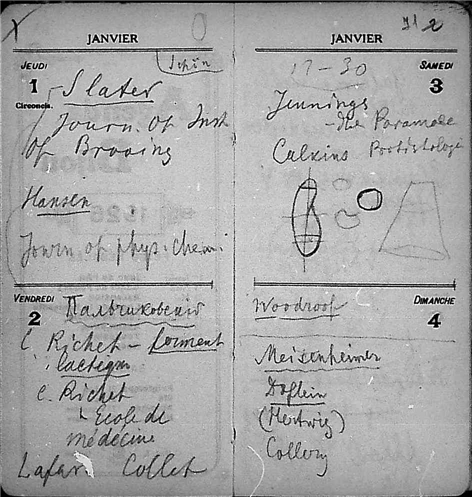 X
JANVIER
Schön
JEUDI
1
Circoncis.
Slater
Journ. of Inst
of Brooing
Hansen
Journ of phys. chemi.
VENDREDI
2
Пальчиковский
C Richet - ferment
lactique
C. Richet
Ecole de
médecine
Lafar. Collet
2
JANVIER
SAMEDI
3
17-30
Jennings
- die Paramaec
Calkins Protistologie
DIMANCHE
4
Woodroof
Meisenheimer
Doflein
(Hertwig)